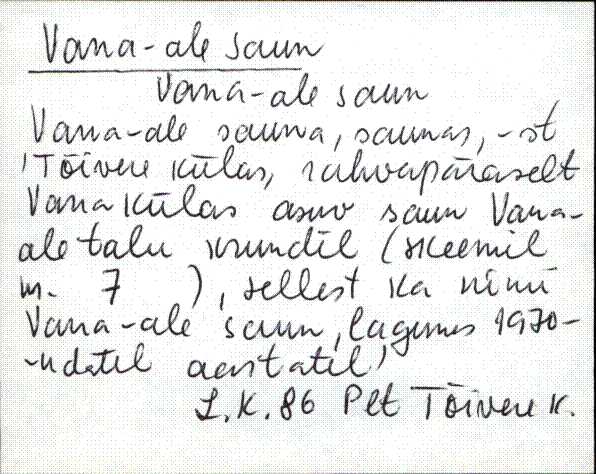 Vana-ale saun
Vana-ale saun
Vana-ale sauna, saunas, -st
'Tõivere külas, rahvapäraselt
Vanakülas asuv saun Vana-
ale talu krundil (skeemil
nr. 7 ), sellest ka nimi
Vana-ale saun, lagunes 1970-
-ndatel aastatel'
L.K. 86 Plt Tõivere k.